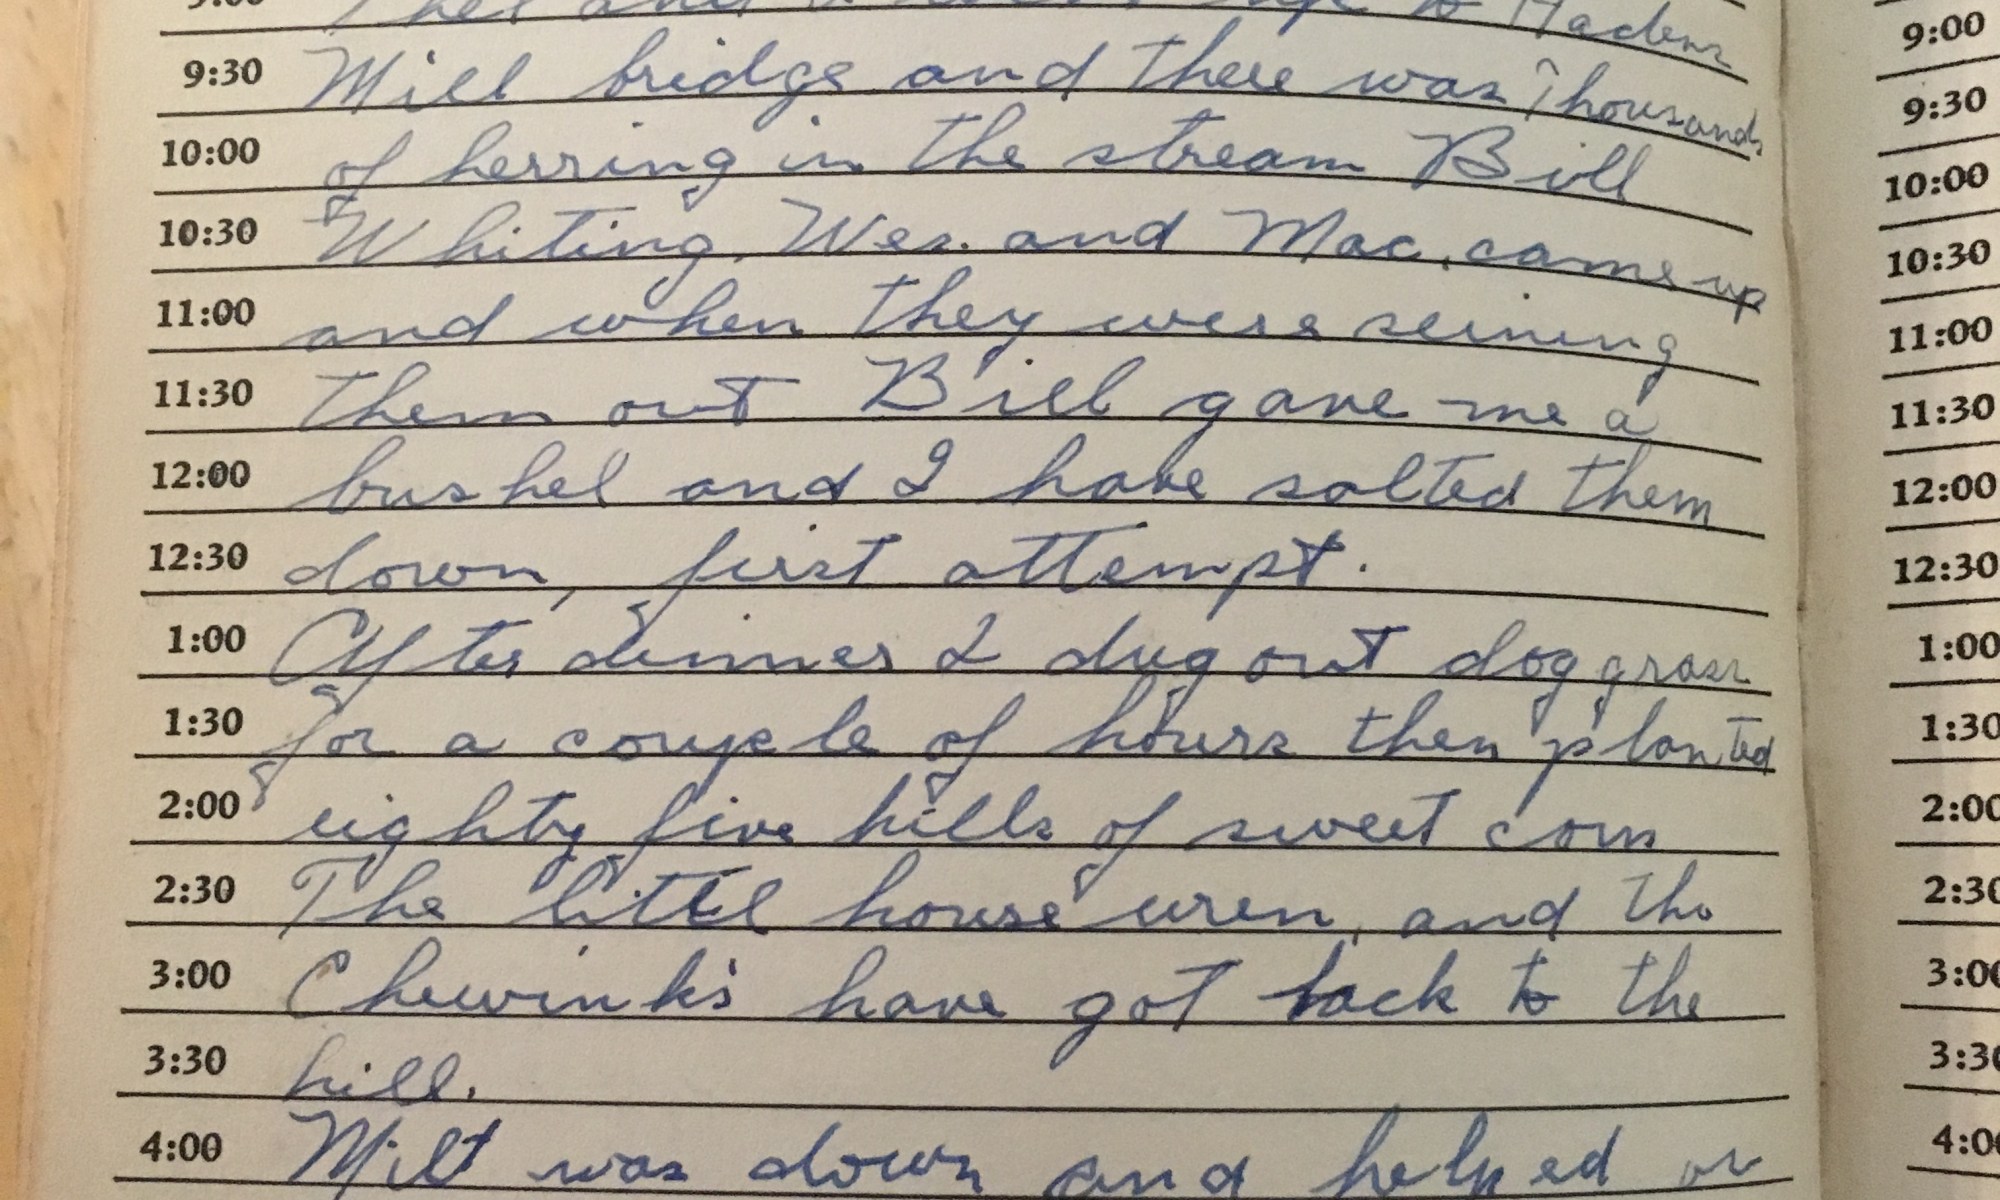 and up to
9:30 Mill bridge and there was Thousands
10:00 of herring in the stream Bill
10:30 Whiting, Wes. and Mac. came up
11:00 and when they were seining
11:30 them out Bill gave me a
12:00 bushel and I have salted them
12:30 down, first attempt.
1:00 After dinner I dug out dog grass
1:30 for a couple of hours then planted
2:00 eighty five hills of sweet corn
2:30 The littel house wren, and the
3:00 Chewink's have got back to the
3:30 hill.
4:00 Milt was down and helped
9:00
9:30
10:00
10:30
11:00
11:30
12:00
12:30
1:00
1:30
2:00
2:30
3:00
3:30
4:00